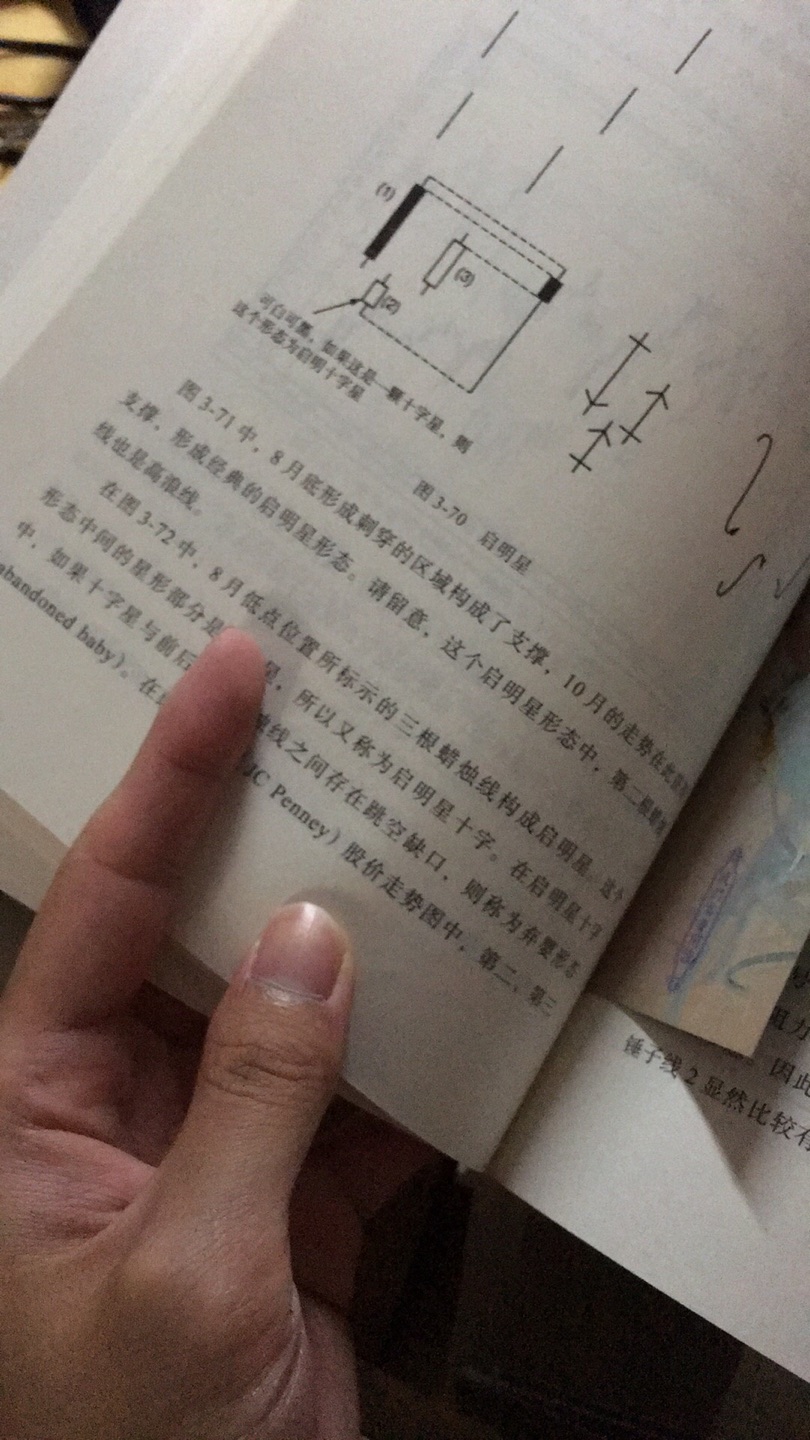 (1)
(3)
(2)
可白可黑，如果这是一颗十字星，则
这个形态为启明十字星
图 3-70 启明星
图 3-71 中，8 月底形成刺穿的区域构成了支撑，10 月的走势在此
支撑，形成经典的启明星形态。请留意，这个启明星形态中，第二根
线也是高浪线。
在图 3-72 中，8 月低点位置所标示的三根蜡烛线构成启明星。这个
形态中间的星形部分是 星，所以又称为启明星十字。在启明星十字
中，如果十字星与前后 线之间存在跳空缺口，则称为弃婴形态
abandoned baby）。在 JC Penney）股价走势图中，第二、第三
阻力
因此
锤子线 2 显然比较有